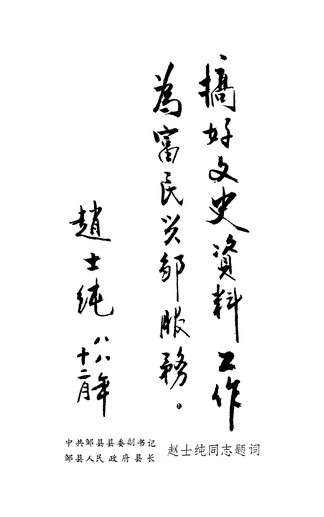 搞好文史資料工作
為富民兴邹服務。
趙士纯
八八年
十二月
中共邹县县委副书记
邹县人民政府县长
赵士纯同志题词